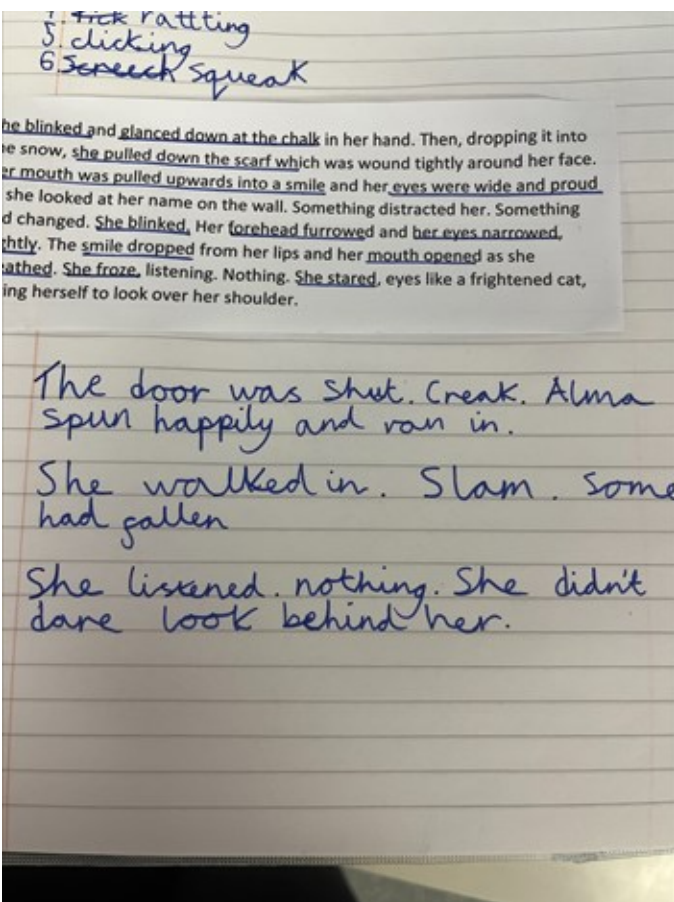 4. Tick rattting
5. clicking
6 Screech squeak
he blinked and glanced down at the chalk in her hand. Then, dropping it into
e snow, she pulled down the scarf which was wound tightly around her face.
er mouth was pulled upwards into a smile and her eyes were wide and proud
she looked at her name on the wall. Something distracted her. Something
d changed. She blinked, Her forehead furrowed and her eyes narrowed,
ghtly. The smile dropped from her lips and her mouth opened as she
eathed. She froze, listening. Nothing. She stared, eyes like a frightened cat,
ing herself to look over her shoulder.
The door was shut. Creak. Alma
spun happily and ran in.
She walked in. Slam. Some
had fallen
She listened. nothing. She didn't
dare look behind her.